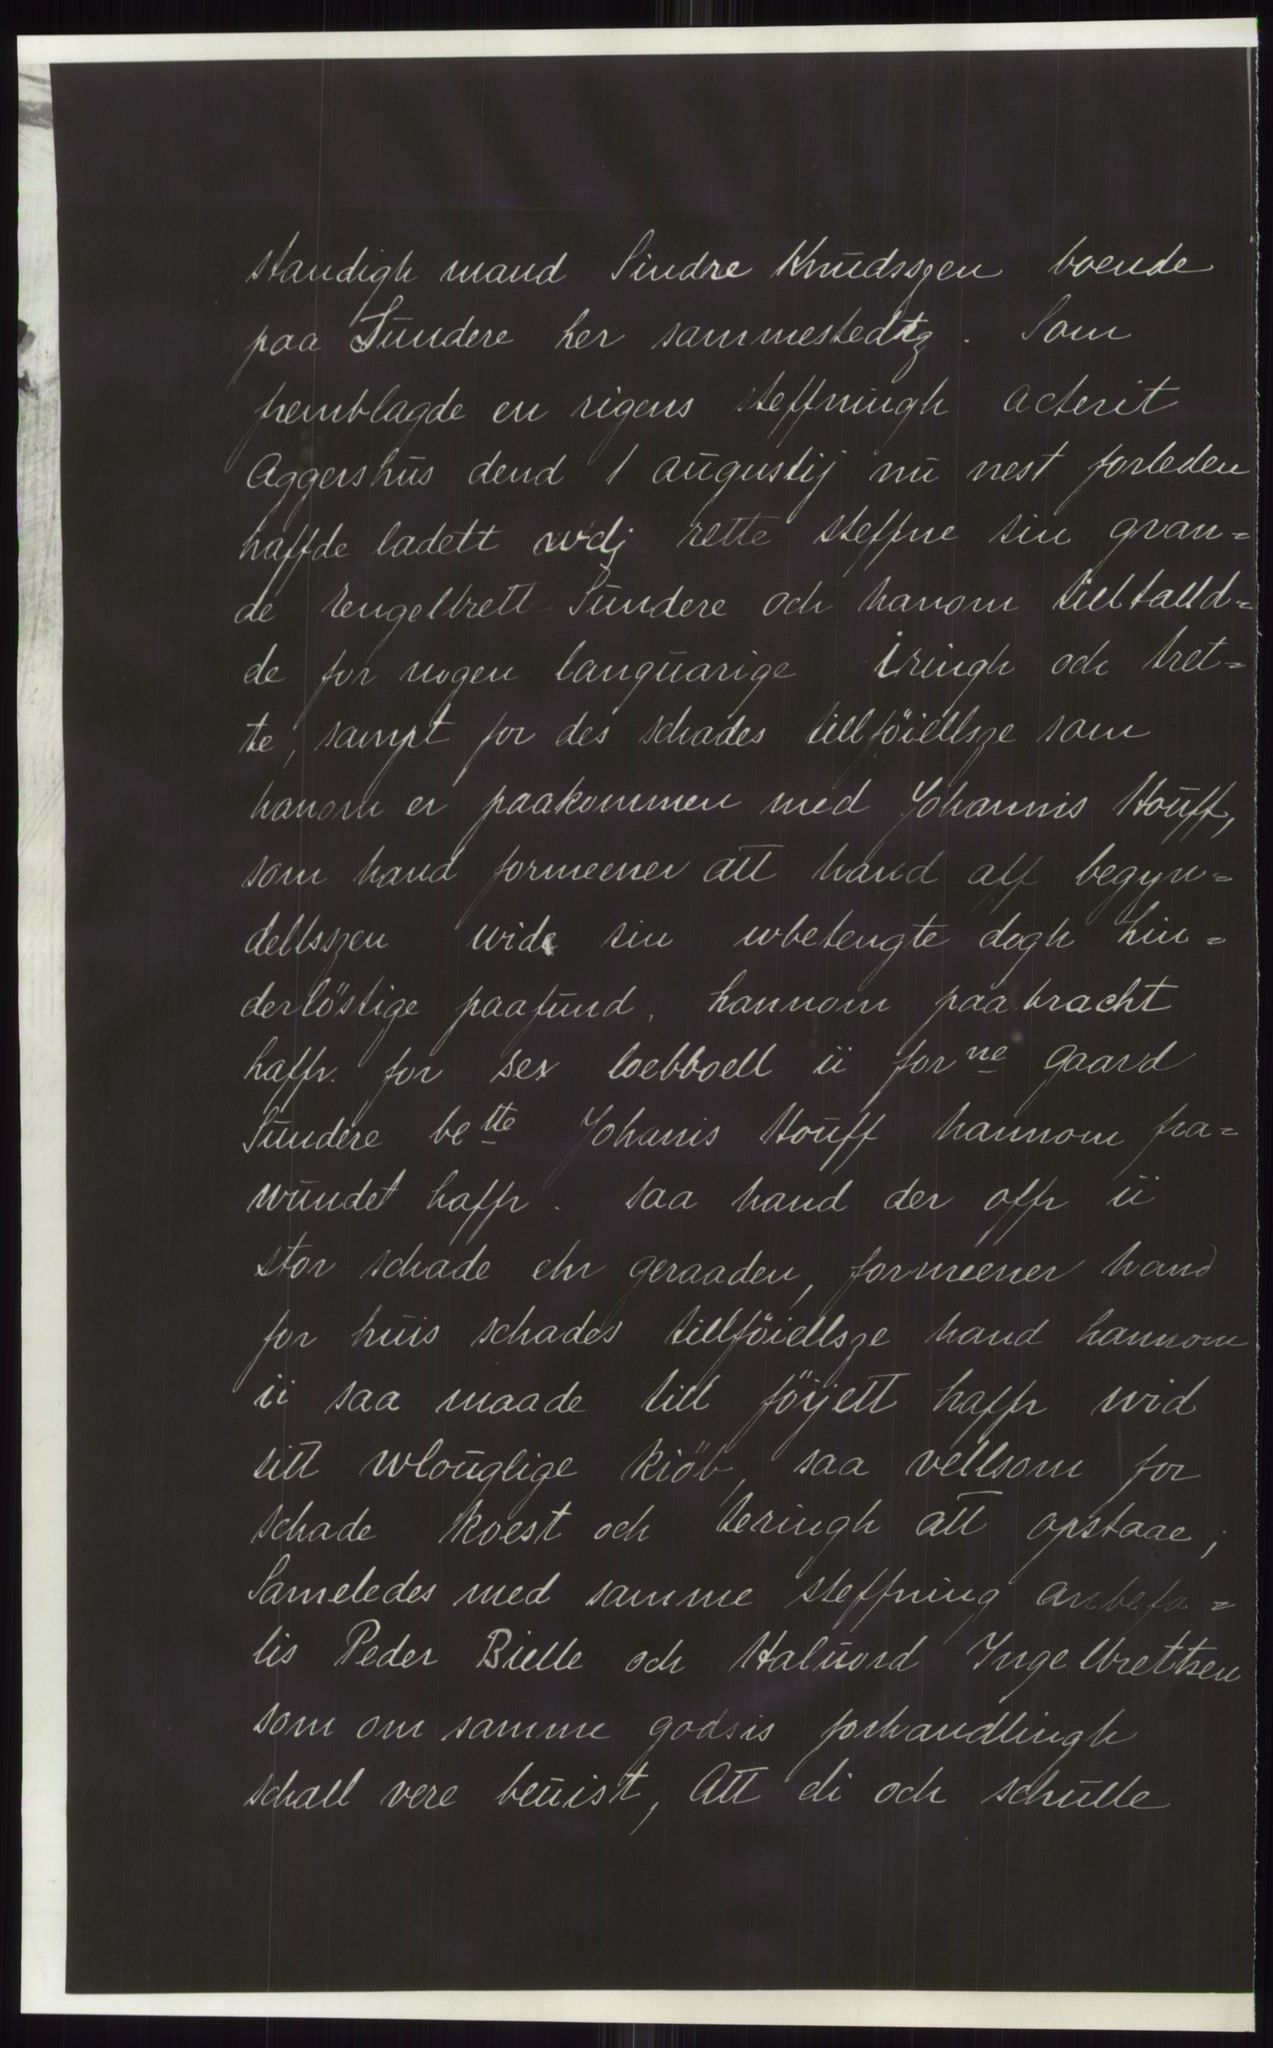 standigh mand Sindre Knudsszen boende
paa Sundere her sammestedtz. Som
fremblagde en rigens steffningh acterit
Aggershus dend 1 augustij nu nest forleden
haffde ladett wdj rette steffne sin gran=
de Engelbrett Sundere och hanom tilltalld=
de for nogen languarige iringh och tret=
te, sampt for des schades tillföiellsze som
hanom er paakommen med Johannis Houff,
som hand formeener att hand aff begyn=
dellsszen wide sin wbetengte dogh hin=
derlöstige paafund, hannom paabracht
haffr. for sex loebboell ii forne gaard
Sundere bette Johanis Houff hannom fra=
wundet haffr. saa hand der offr ii
stor schade ehr geraaden, formeener hand
for huis schades tillföiellsze hand hannom
ii saa maade till föÿett haffr wid
sitt wlouglige kiöb, saa vellsom for
schade koest och teringh att opstaae;
Sameledes med samme steffning anbefa=
lis Peder Bielle och Haluord Ingelbrettsen
som om samme godsis forhandlingh
schall vere beuist, Att di och schulle